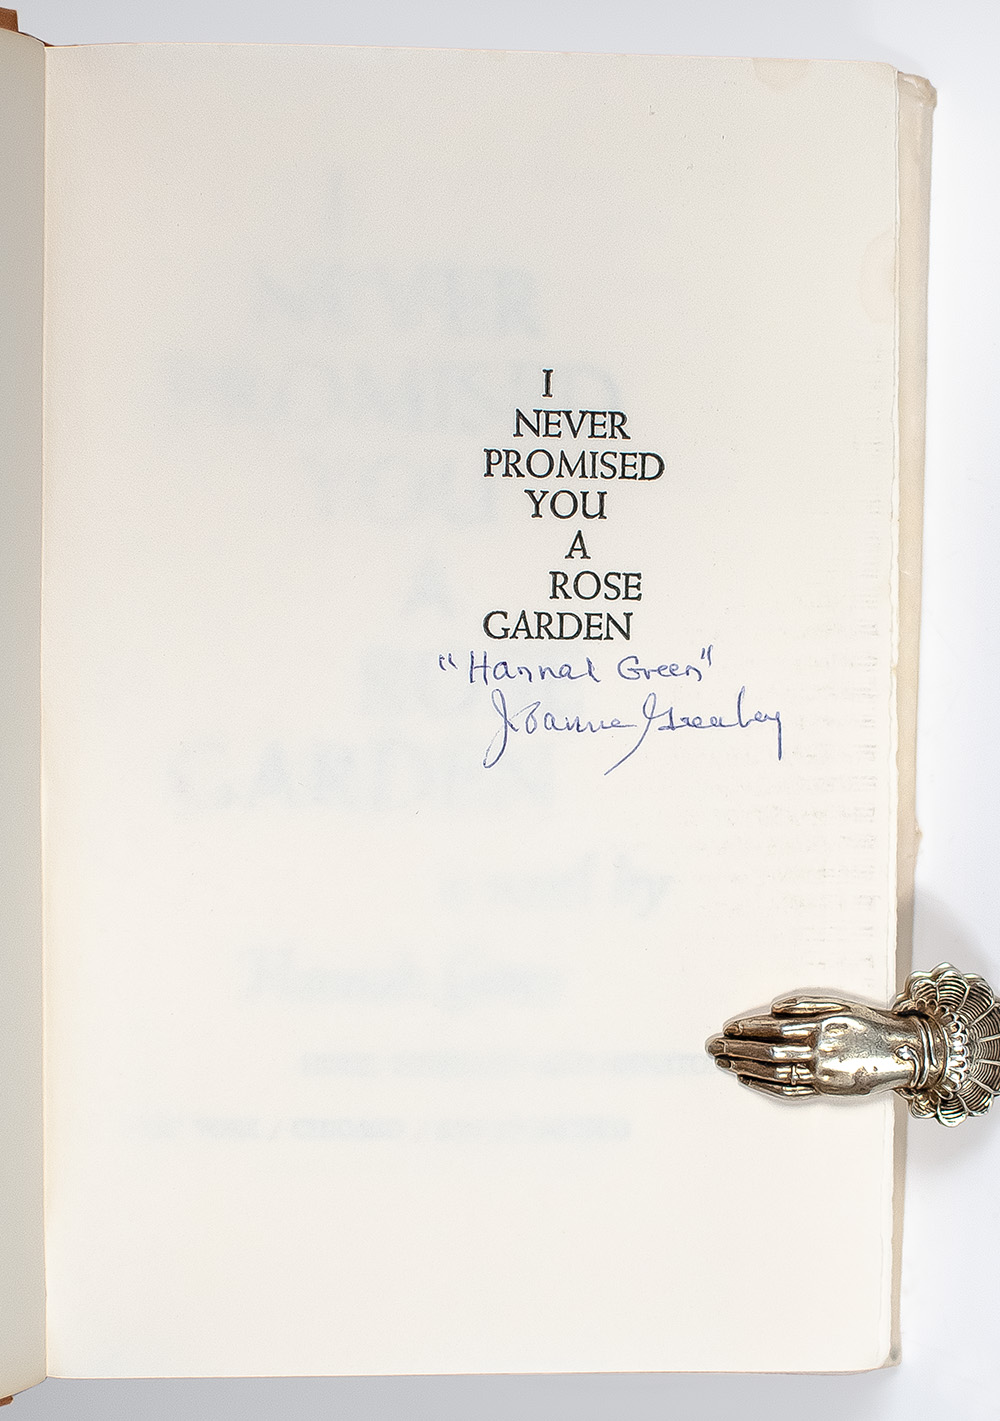 I
NEVER
PROMISED
YOU
A
ROSE
GARDEN
"Hannah Green"
Joanne Greenberg